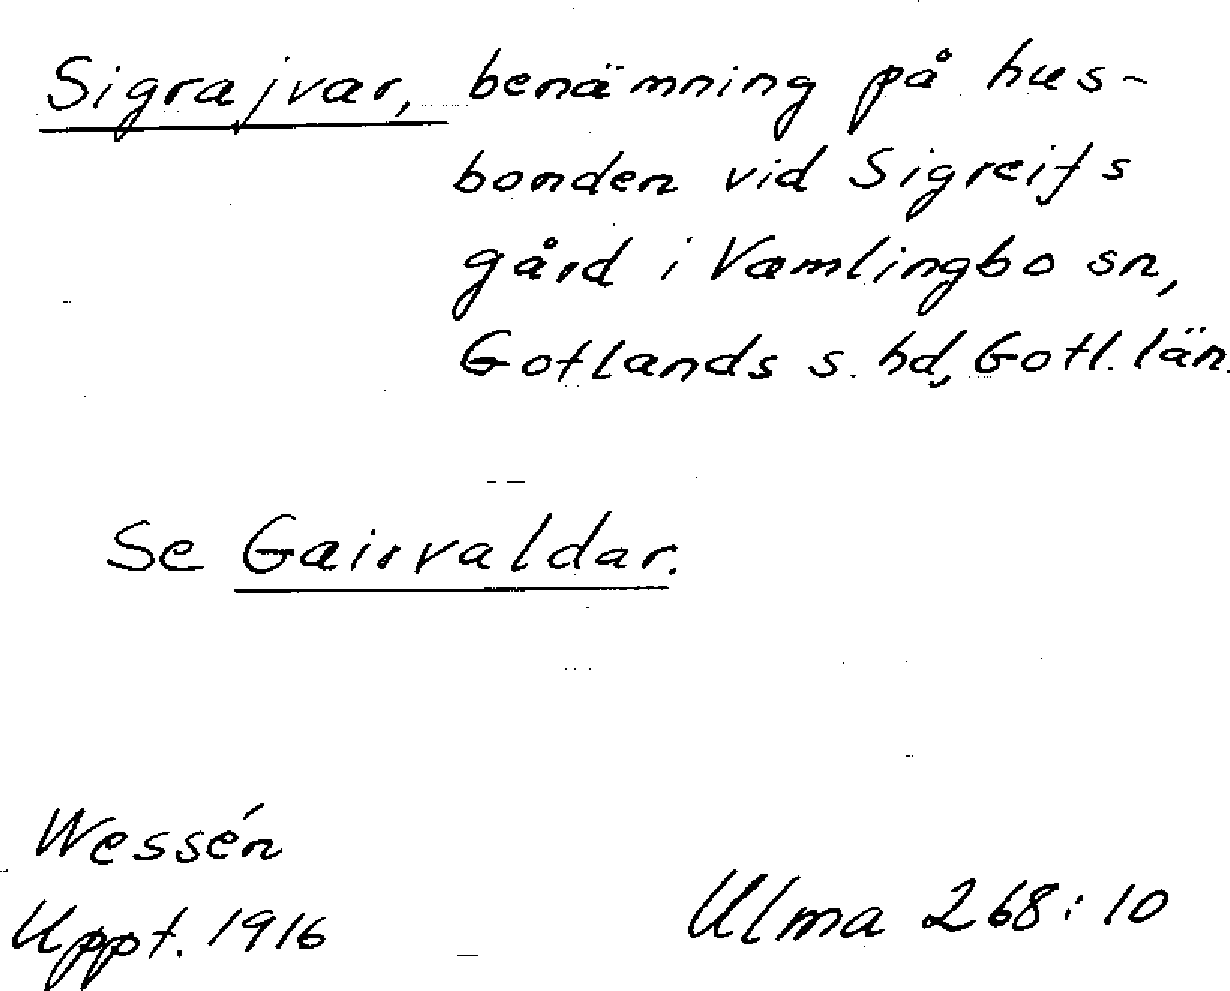 Sigrajvar, benämning på hus-
bonden vid Sigreifs
gård i Vamlingbo sn,
Gotlands s. hd, Gotl. län.
Se Gairvaldar.
Wessén
Uppt. 1916
Ulma 268:10